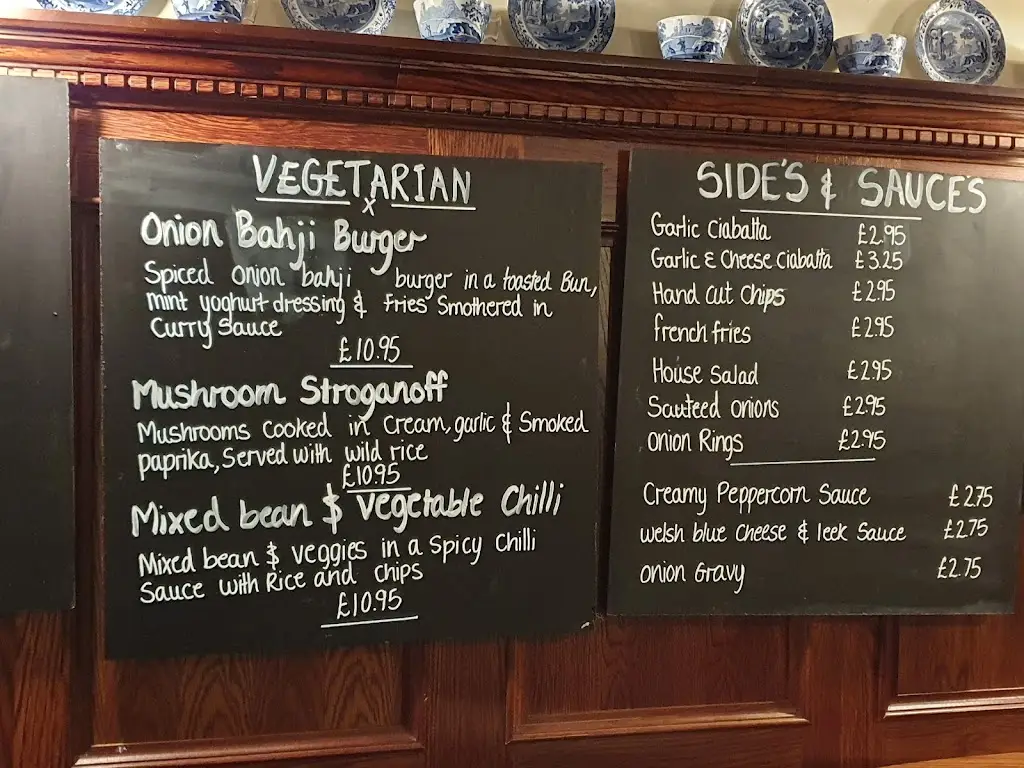 VEGETARIAN
x
Onion Bahji Burger
Spiced onion bahji burger in a toasted Bun,
mint yoghurt dressing & fries Smothered in
Curry Sauce
£10.95
Mushroom Stroganoff
Mushrooms cooked in Cream, garlic & Smoked
paprika, Served with wild rice
£10.95
Mixed bean & vegetable Chilli
Mixed bean & veggies in a Spicy Chilli
Sauce with Rice and chips
£10.95
SIDE'S & SAUCE'S
Garlic Ciabatta £2.95
Garlic & Cheese Ciabatta £3.25
Hand cut Chips £2.95
french fries £2.95
House salad £2.95
Sauteed onions £2.95
onion Rings £2.95
Creamy Peppercorn Sauce £2.75
welsh blue cheese & leek Sauce £2.75
onion Gravy £2.75